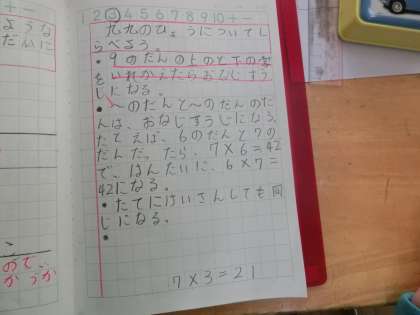 1 2 3 4 5 6 7 8 9 10 + −
九九のひょうについてし
らべよう。
・9のだんの上と下の字
をいれかえたらおなじすう
じになる。
・〜のだんと〜のだんのだ
んは、おなじすうじになる
たとえば、6のだんと7の
だんだったら、7×6=42
で、はんたいに、6×7=
42になる。
・たてにけいさんしても同
じになる。
・
7×3=21
ような
だいに
ので、
かうか